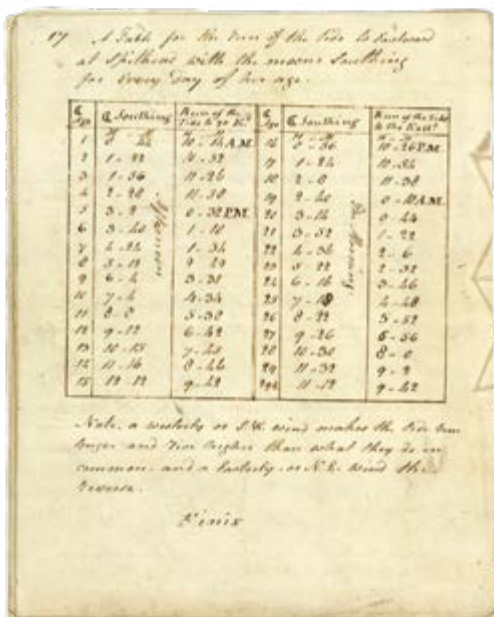 17 A Table for the run of the Tide to Eastward
at Spithead with the moons Southing
for every day of her age.
☾ Age ☾ Southing Run of the Tide to ye Et. ☾ Age ☾ Southing Run of the Tide to the East
H - M H - M H - M H - M
1 0 - 44 10 - 14 A.M. 16 0 - 56 10 - 26 P.M.
2 1 - 22 10 - 52 17 1 - 24 10 - 54
3 1 - 56 11 - 26 18 2 - 0 11 - 30
4 2 - 20 11 - 50 19 2 - 40 0 - 10 A.M.
5 3 - 2 0 - 32 P.M. 20 3 - 14 0 - 44
6 3 - 40 1 - 10 21 3 - 52 1 - 22
7 4 - 24 1 - 54 22 4 - 36 2 - 6
8 5 - 22 2 - 52
9 6 - 4 24 6 - 16 3 - 46
10 7 - 4 4 - 34 25 7 - 18 4 - 48
11 8 - 0 5 - 30 26 8 - 22 5 - 52
12 9 - 12 6 - 42 27 9 - 26 5 - 56
13 10 - 15 7 - 45 28 10 - 30 8 - 0
14 11 - 16 8 - 46 29 11 - 32 9 - 2
15 12 - 12 9 - 42 11 - 12 9 - 42
Afternoon
Morning
Note. a westerly or S.W. wind makes the Tide run
longer and rise higher than what they do in
common. and a Easterly. or N.E. wind the
reverse.
Finis